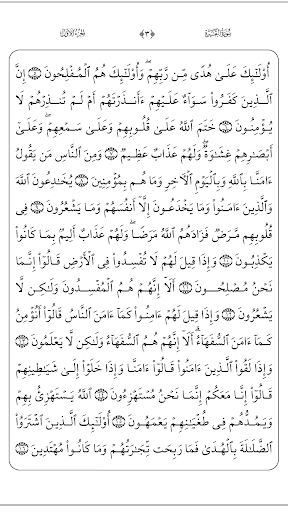 سُورَةُ البَقَرَةِ ﴿٣﴾ الجُزْءُ الأَوَّلُ
أُو۟لَٰٓئِكَ عَلَىٰ هُدًى مِّن رَّبِّهِمْ ۖ وَأُو۟لَٰٓئِكَ هُمُ ٱلْمُفْلِحُونَ إِنَّ
ٱلَّذِينَ كَفَرُوا۟ سَوَآءٌ عَلَيْهِمْ ءَأَنذَرْتَهُمْ أَمْ لَمْ تُنذِرْهُمْ لَا
يُؤْمِنُونَ خَتَمَ ٱللَّهُ عَلَىٰ قُلُوبِهِمْ وَعَلَىٰ سَمْعِهِمْ ۖ وَعَلَىٰٓ
أَبْصَٰرِهِمْ غِشَٰوَةٌ ۖ وَلَهُمْ عَذَابٌ عَظِيمٌ وَمِنَ ٱلنَّاسِ مَن يَقُولُ
ءَامَنَّا بِٱللَّهِ وَبِٱلْيَوْمِ ٱلْءَاخِرِ وَمَا هُم بِمُؤْمِنِينَ يُخَٰدِعُونَ ٱللَّهَ
وَٱلَّذِينَ ءَامَنُوا۟ وَمَا يَخْدَعُونَ إِلَّآ أَنفُسَهُمْ وَمَا يَشْعُرُونَ فِى
قُلُوبِهِم مَّرَضٌ فَزَادَهُمُ ٱللَّهُ مَرَضًا ۖ وَلَهُمْ عَذَابٌ أَلِيمٌۢ بِمَا كَانُوا۟
يَكْذِبُونَ وَإِذَا قِيلَ لَهُمْ لَا تُفْسِدُوا۟ فِى ٱلْأَرْضِ قَالُوٓا۟ إِنَّمَا
نَحْنُ مُصْلِحُونَ أَلَآ إِنَّهُمْ هُمُ ٱلْمُفْسِدُونَ وَلَٰكِن لَّا
يَشْعُرُونَ وَإِذَا قِيلَ لَهُمْ ءَامِنُوا۟ كَمَآ ءَامَنَ ٱلنَّاسُ قَالُوٓا۟ أَنُؤْمِنُ
كَمَآ ءَامَنَ ٱلسُّفَهَآءُ ۗ أَلَآ إِنَّهُمْ هُمُ ٱلسُّفَهَآءُ وَلَٰكِن لَّا يَعْلَمُونَ
وَإِذَا لَقُوا۟ ٱلَّذِينَ ءَامَنُوا۟ قَالُوٓا۟ ءَامَنَّا وَإِذَا خَلَوْا۟ إِلَىٰ شَيَٰطِينِهِمْ
قَالُوٓا۟ إِنَّا مَعَكُمْ إِنَّمَا نَحْنُ مُسْتَهْزِءُونَ ٱللَّهُ يَسْتَهْزِئُ بِهِمْ
وَيَمُدُّهُمْ فِى طُغْيَٰنِهِمْ يَعْمَهُونَ أُو۟لَٰٓئِكَ ٱلَّذِينَ ٱشْتَرَوُا۟
ٱلضَّلَٰلَةَ بِٱلْهُدَىٰ فَمَا رَبِحَت تِّجَٰرَتُهُمْ وَمَا كَانُوا۟ مُهْتَدِينَ